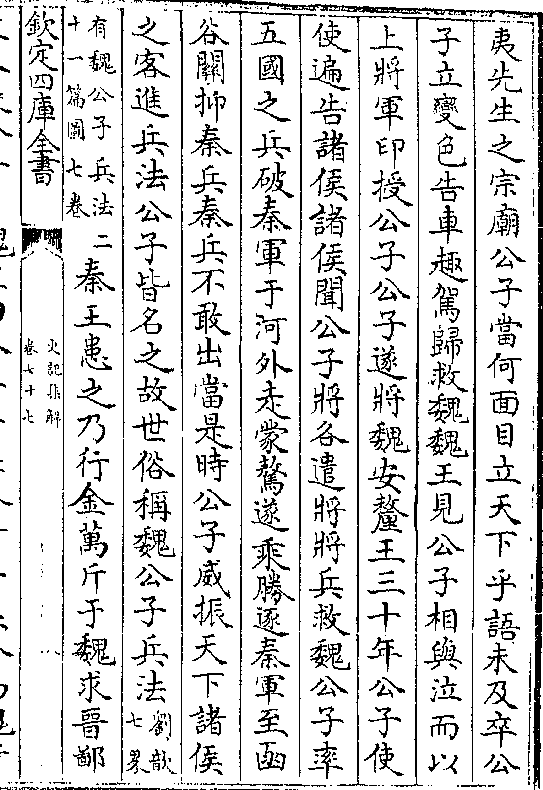 夷先生之宗廟公子當何面目立天下乎語未及卒公
子立變色告車趣駕歸救魏魏王見公子相與泣而以
上將軍印授公子公子遂將魏安釐王三十年公子使
使遍告諸侯諸侯聞公子將各遣將將兵救魏公子率
五國之兵破秦軍于河外走蒙驁遂乘勝逐秦軍至函
谷關抑秦兵秦兵不敢出當是時公子威振天下諸侯
之客進兵法公子皆名之故世俗稱魏公子兵法劉歆七畧
有魏公子兵法二十一篇圖七卷秦王患之乃行金萬斤于魏求晉鄙
欽定四庫全書
史記集解
卷七十七